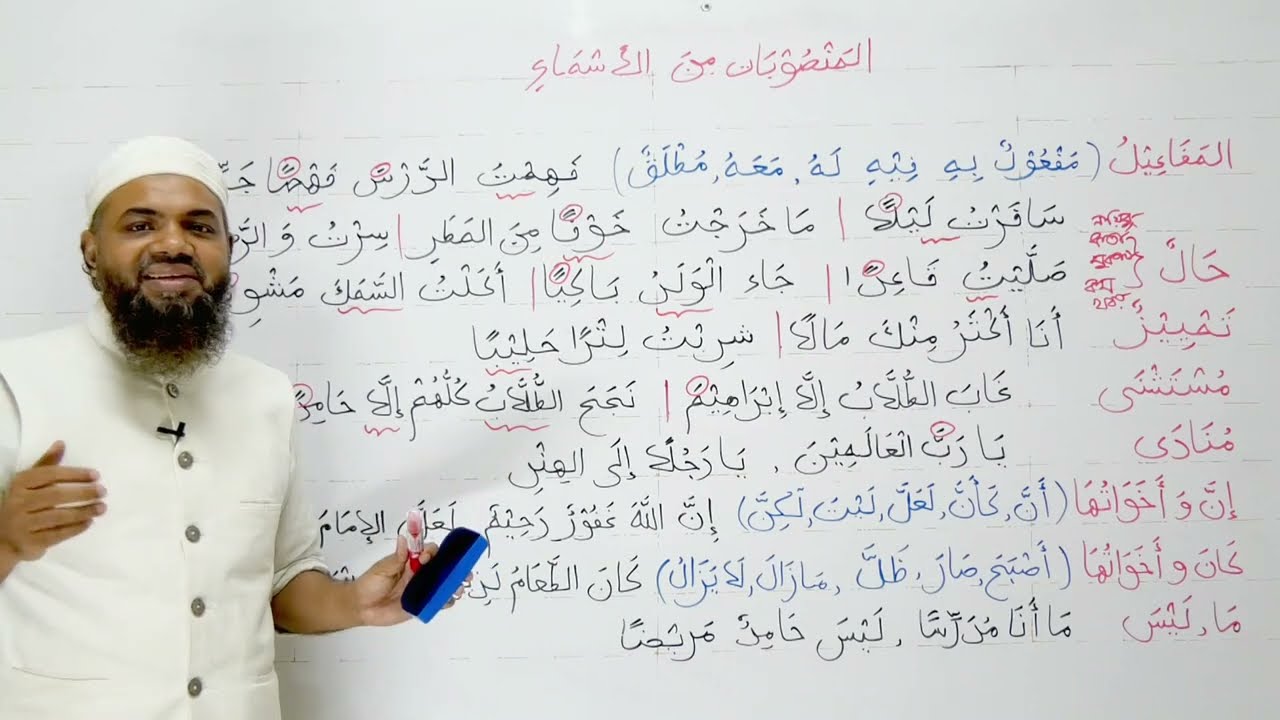 المَنْصُوْبَات مِنَ الأَسْمَاءِ
المَفَاعِيْلُ (مَفْعُوْلٌ بِهِ فِيْهِ لَهُ, مَعَهُ, مُطْلَقٌ) فَهِمْتُ الدَّرْسَ فَهْمًا
سَافَرْتُ لَيْلًا | مَا خَرَجْتُ خَوْفًا مِنَ المَطَرِ | سِرْتُ وَ
حَالٌ صَلَّيْتُ قَاعِدًا | جَاءَ الْوَلَدُ بَاكِيًا | أَكَلْتُ السَّمَكَ
تَمْيِيْزٌ أَنَا أَكْثَرُ مِنْكَ مَالًا | شَرِبْتُ لِتْرًا حَلِيْبًا
مُسْتَثْنَى غَابَ الطُّلَّابُ إِلَّا إِبْرَاهِيْمَ | نَجَحَ الطُّلَّابُ كُلُّهُمْ إِلَّا حَامِدًا
مُنَادَى يَا رَبَّ الْعَالَمِيْنَ , يَا رَجُلًا
إِنَّ وَ أَخَوَاتُهَا (أَنَّ, كَأَنَّ, لَعَلَّ, لَيْتَ, لَكِنَّ) إِنَّ اللهَ غَفُوْرٌ رَحِيْمٌ لَعَلَّ الإِمَامَ
كَانَ و أَخَوَاتُهَا (أَصْبَحَ, صَارَ, ظَلَّ, مَازَالَ, لَا يَزَالُ) كَانَ الطَّعَامُ
مَا, لَيْسَ مَا أَنَا مُدَرِّسًا , لَيْسَ حَامِدٌ مَرِيْضًا